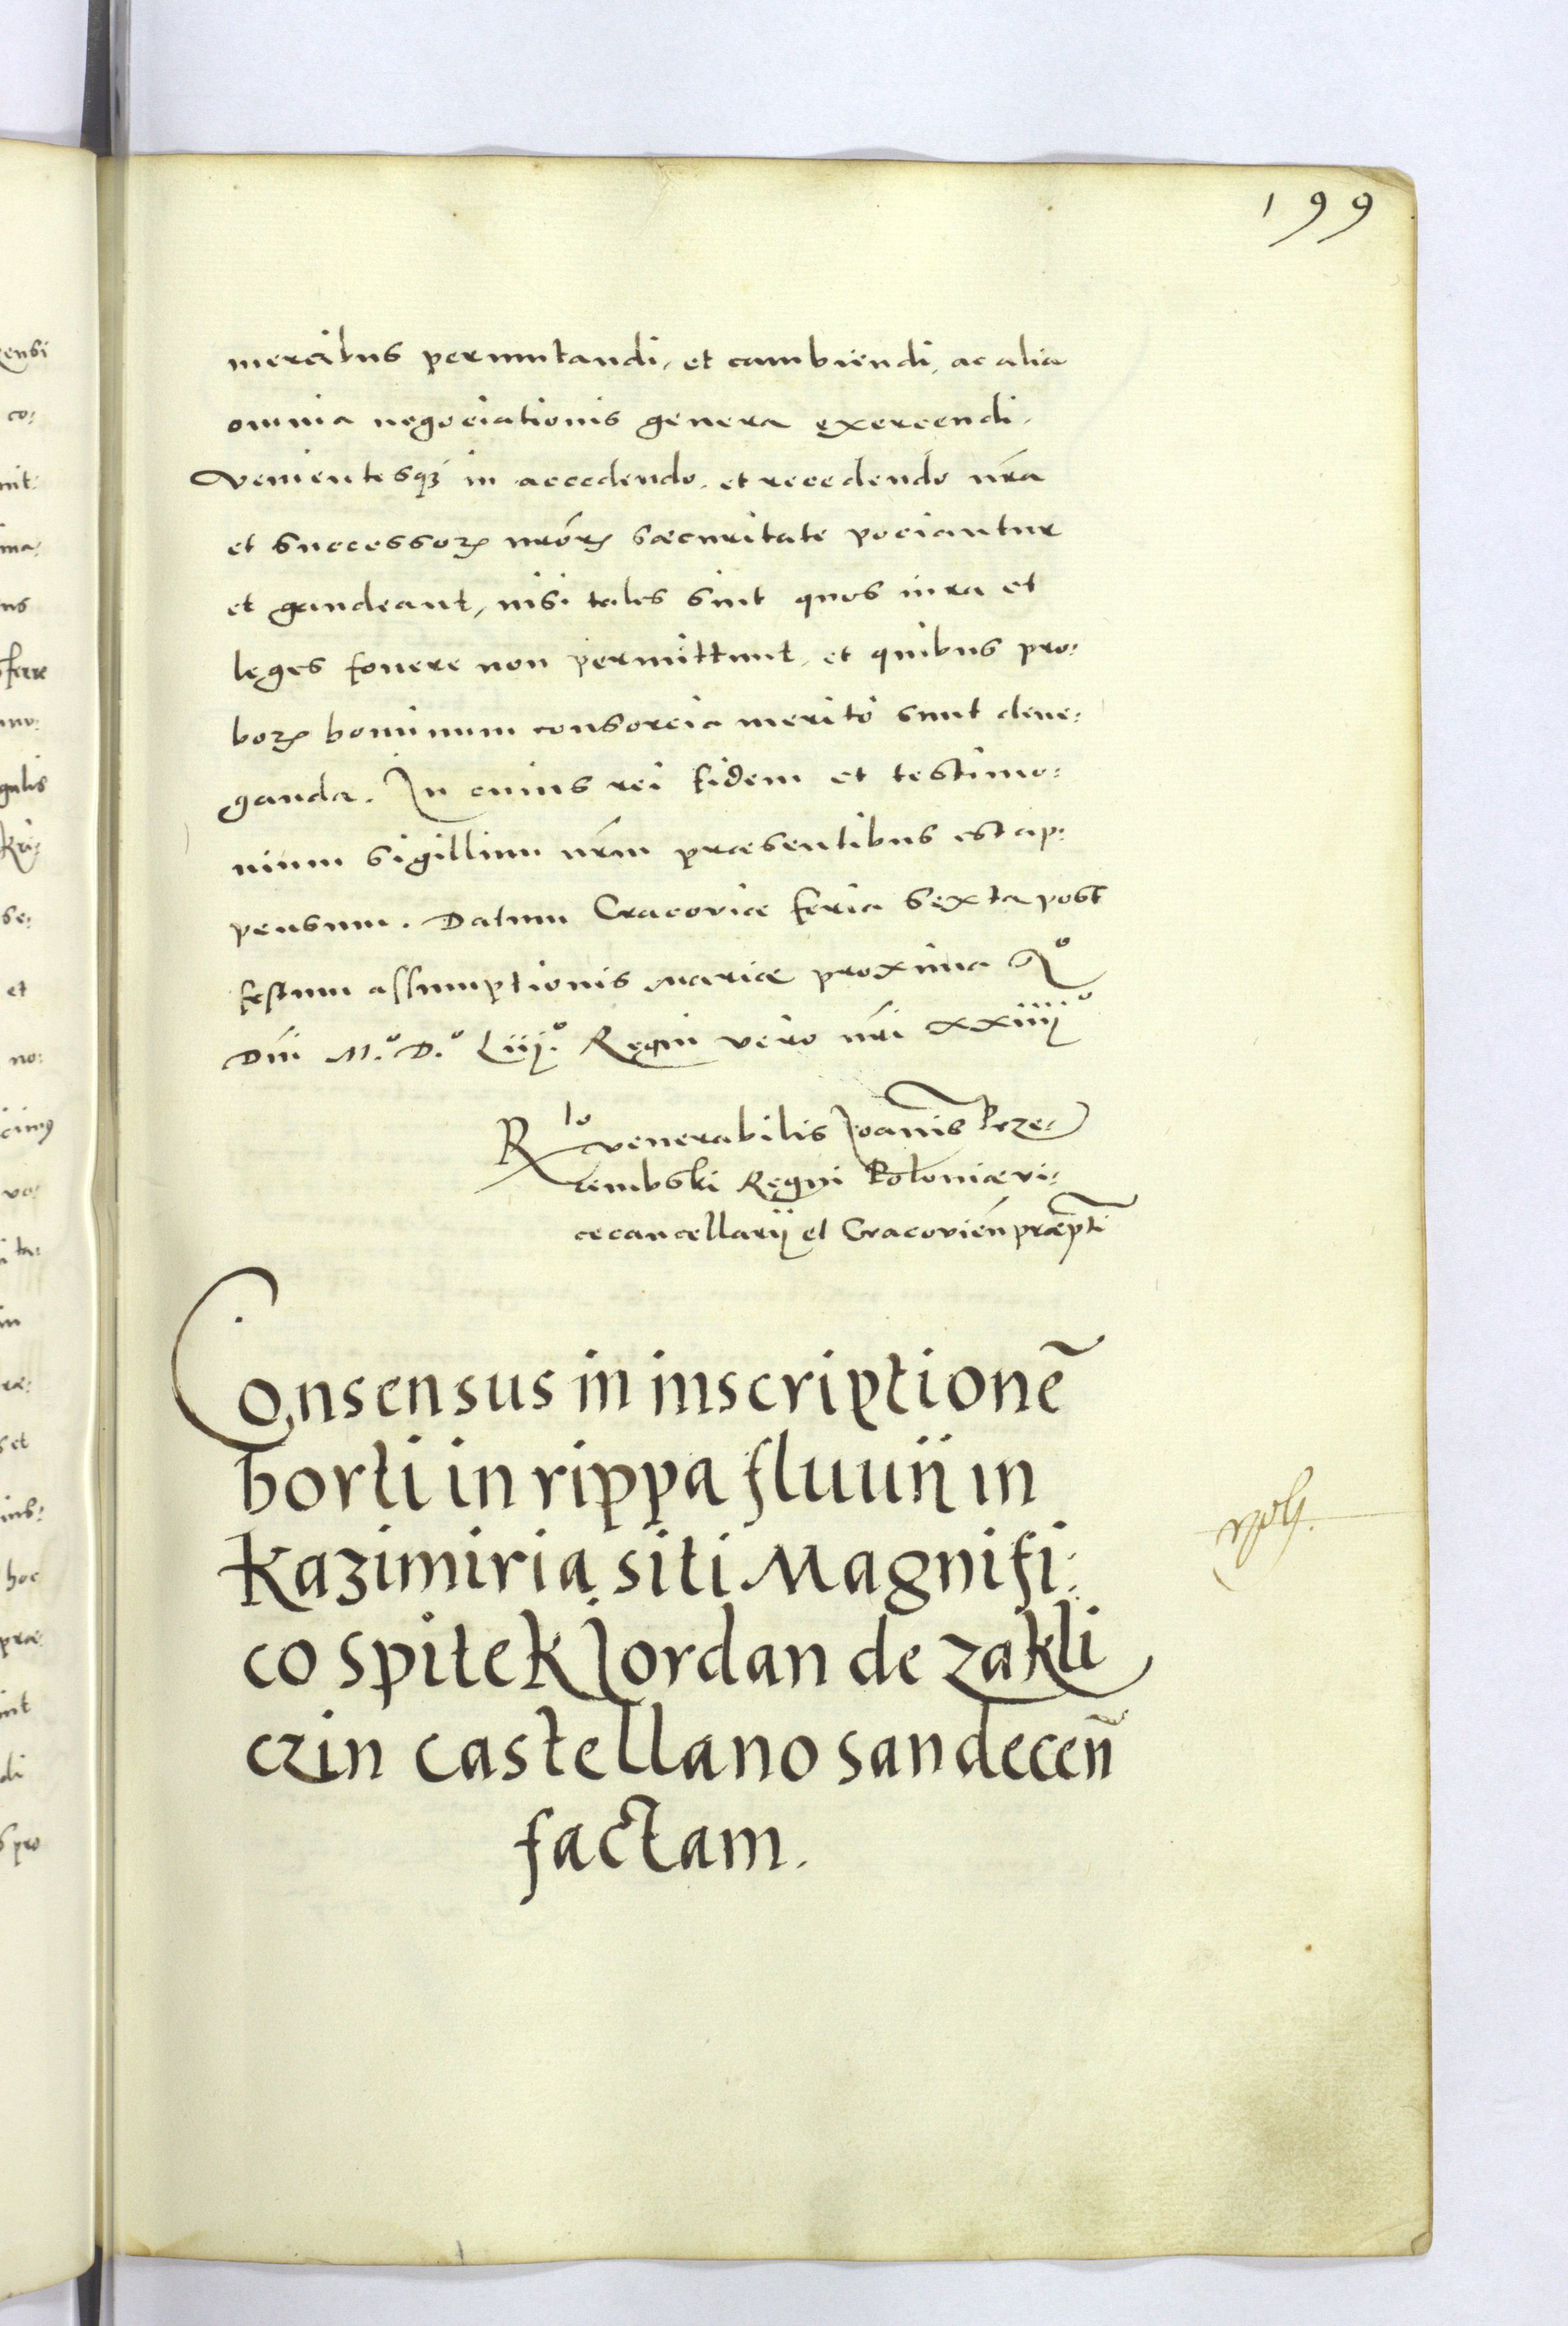 199
mercibus permutandi, et cambiendi, ac alia
omnia negociationis genera exercendi.
Venientesq́ꝫ in accedendo, et recedendo nr̃a
et successorꝝ nr̃orꝝ saecuritate pociantur
et gaudeant, nisi tales sint quos iura et
leges fouere non permittunt, et quibus pro:
borꝝ hominum consorcia meritò sunt dene:
ganda. In cuius rei fidem et testimo:
nium sigillum nr̃m praesentibus est ap:
pensum. Datum Cracoviae feria sexta post
festum assumptionis Mariae proxima Aº
Dñi M.º D.º Liij.º Regni vero nr̃i xxiiijº
Rlo venerabilis Joannis Prze
rembski Regni Poloniae vi:
cecancellarij et Cracovień praepti
Consensus in inscriptionē
horti in rippa fluuij in
Kazimiria siti Magnifi:
co Spitek Jordan de Zakli
czin castellano sandeceñ
factam.